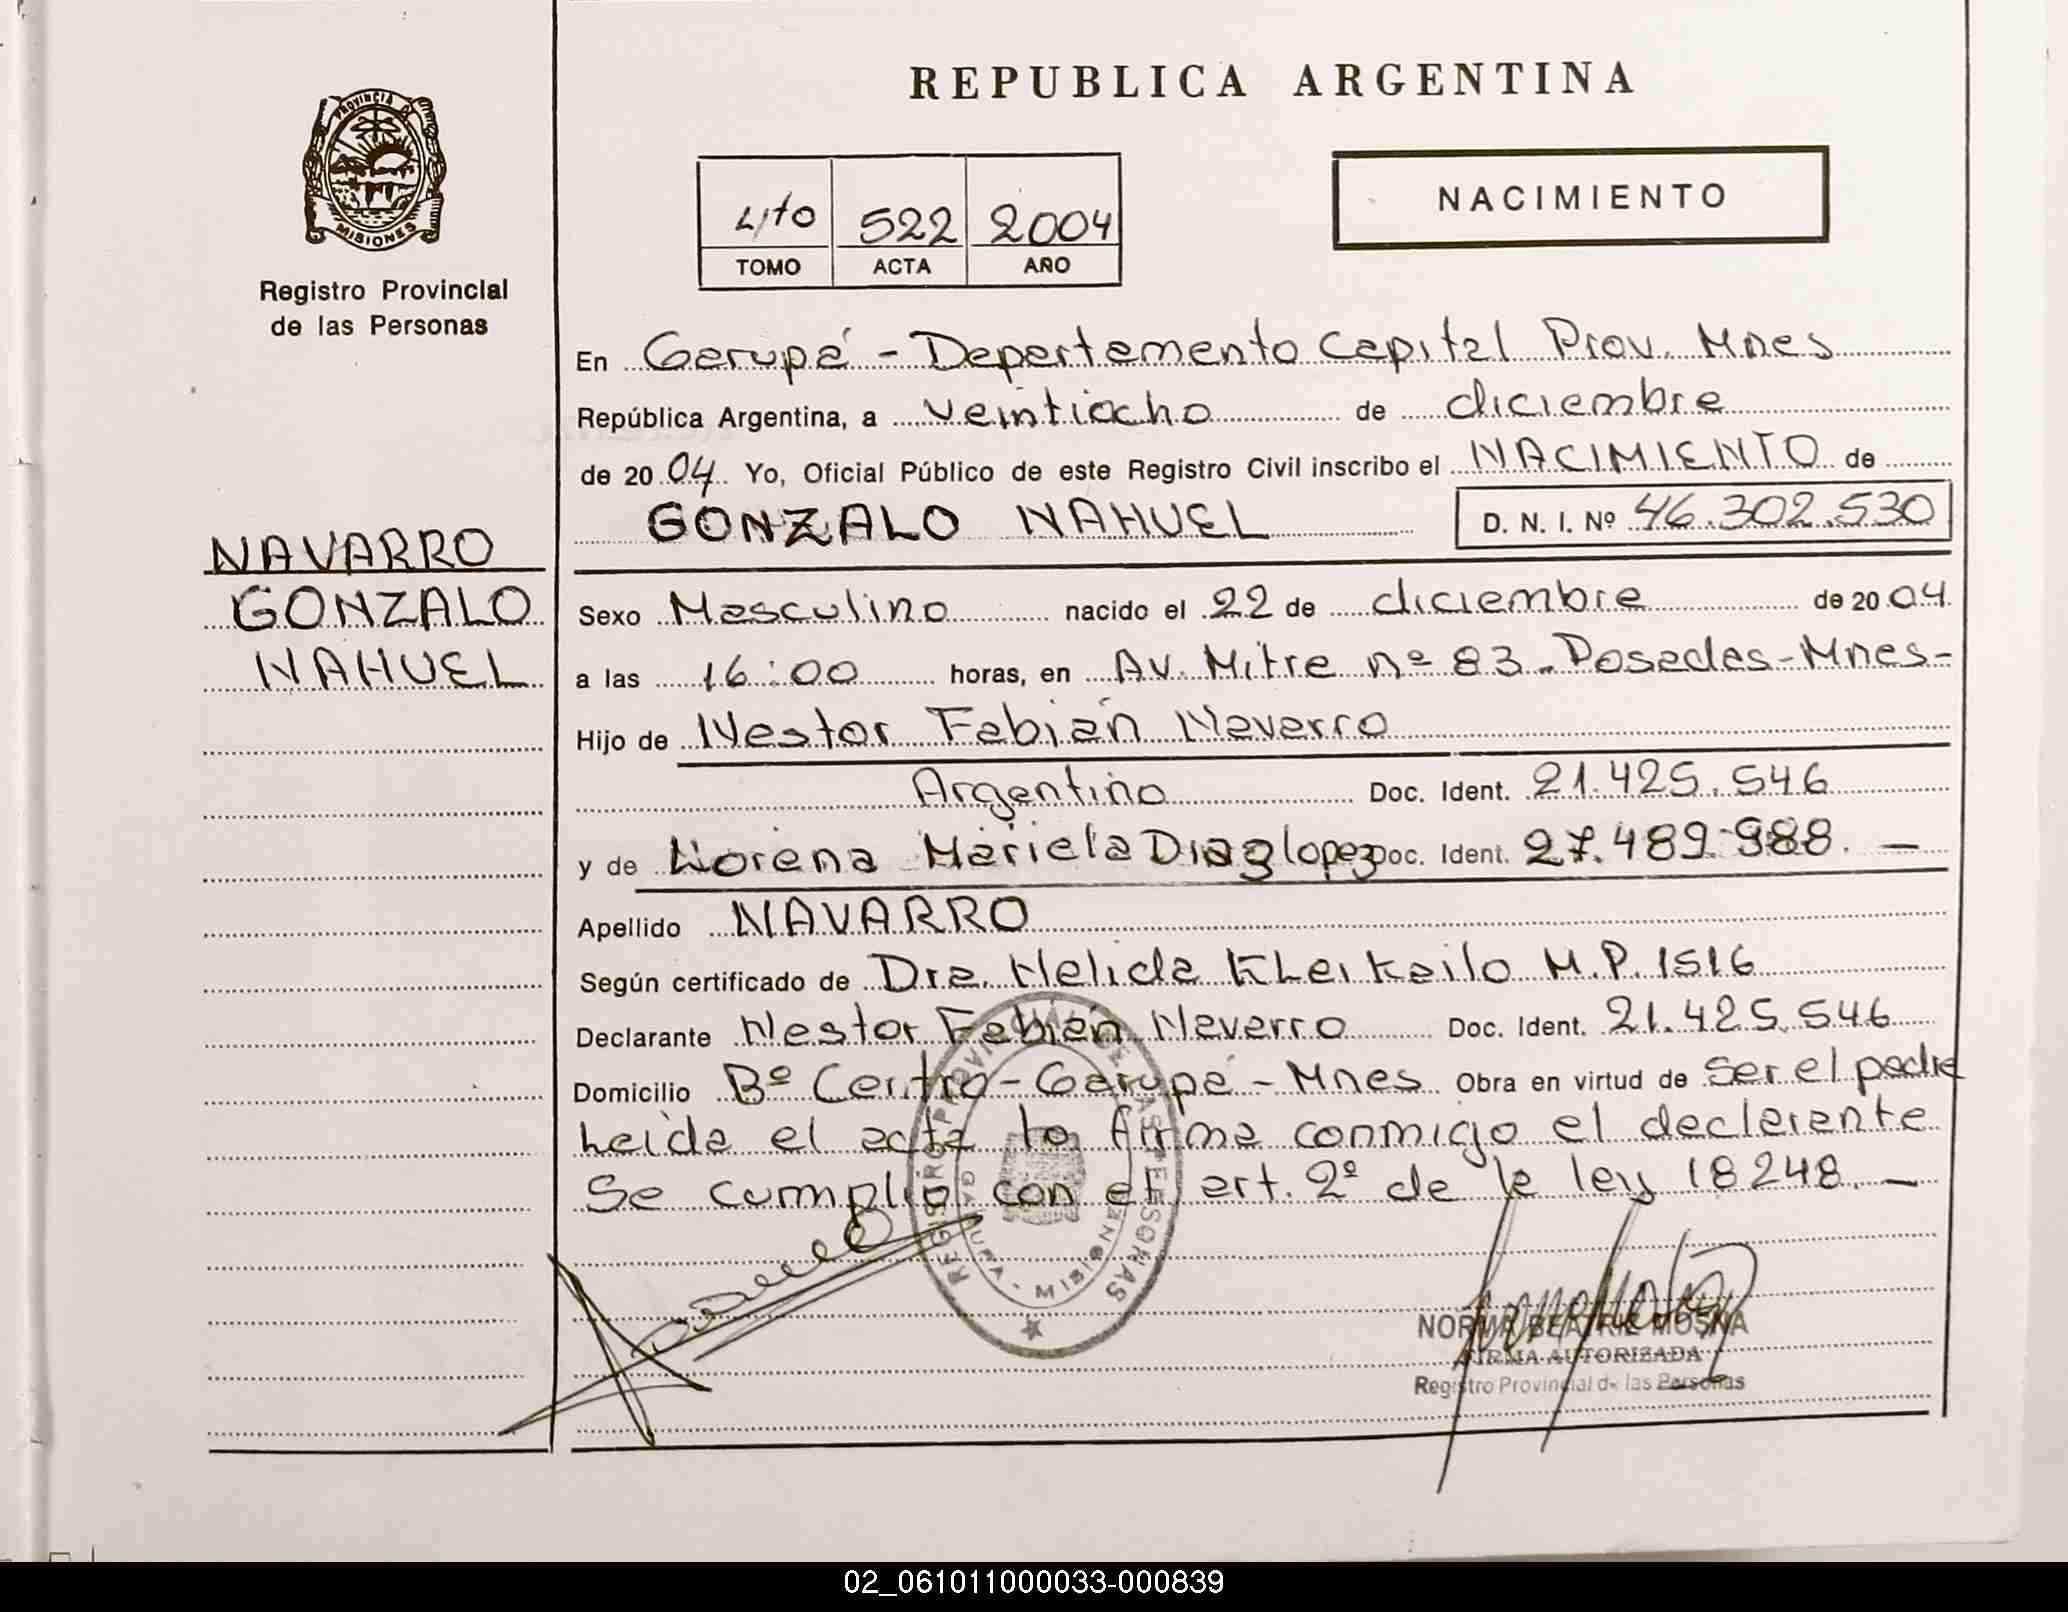 REPUBLICA ARGENTINA
PROVINCIA DE
MISIONES
Registro Provincial
de las Personas
4to 522 2004
TOMO ACTA AÑO
NACIMIENTO
En Garupá - Departamento Capital Prov. Mnes
República Argentina, a veintiocho de diciembre
de 20 04 Yo, Oficial Público de este Registro Civil inscribo el NACIMIENTO de
GONZALO NAHUEL D. N. I. Nº 46.302.530
NAVARRO
GONZALO
NAHUEL
Sexo Masculino nacido el 22 de diciembre de 20 04
a las 16:00 horas, en Av. Mitre nº 83 - Posadas - Mnes -
Hijo de Nestor Fabián Navarro
Argentino Doc. Ident. 21.425.546
y de Lorena Mariela Diaz lopez Doc. Ident. 27.489.988. —
Apellido NAVARRO
Según certificado de Dra. Nelida M.P. 1516
Declarante Nestor Fabián Navarro Doc. Ident. 21.425.546
Domicilio Bº Centro - Garupá - Mnes Obra en virtud de ser el padre
Leida el acta la firma conmigo el declarante
Se cumplió con el art. 2º de la ley 18248. —
REGISTRO PROVINCIAL DE LAS PERSONAS
GARUPA - MISIONES
NORMA BEATRIZ MOSNA
FIRMA AUTORIZADA
Registro Provincial de las Personas
02_061011000033-000839